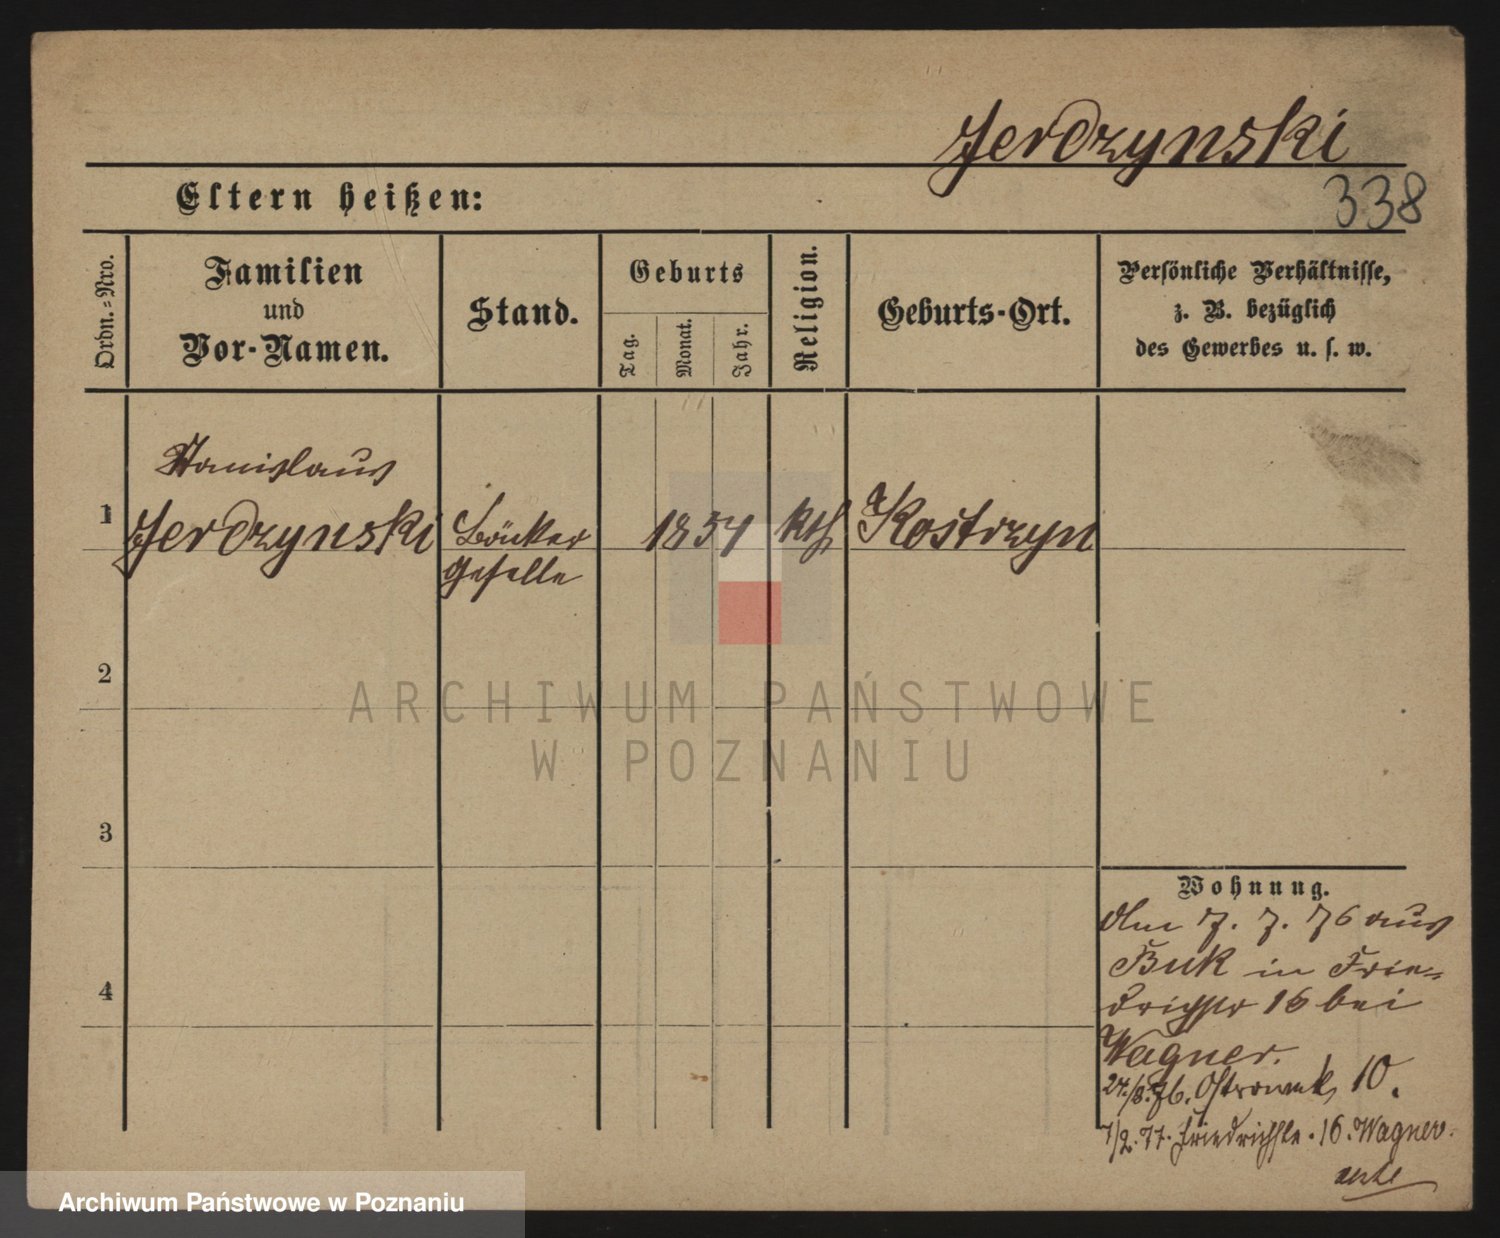 Jerdzynski
Eltern heißen:
338
Ordn.-Nro.
Familien
und
Vor-Namen.
Stand.
Geburts
Tag.
Monat.
Jahr.
Religion.
Geburts-Ort.
Persönliche Verhältnisse,
z. B. bezüglich
des Gewerbes u. s. w.
Stanislaus
1
Jerdzynski
1854
kth
Kostrzyn
Geselle
2
ARCHIWUM PAŃSTWOWE
W POZNANIU
3
Wohnung.
7. 7. 76 aus
Buk in Frie-
drichstr 16 bei
4
Wagner.
24/8. 76. Ostrowek 10.
7/2. 77. Friedrichstr. 16. Wagner.
Archiwum Państwowe w Poznaniu